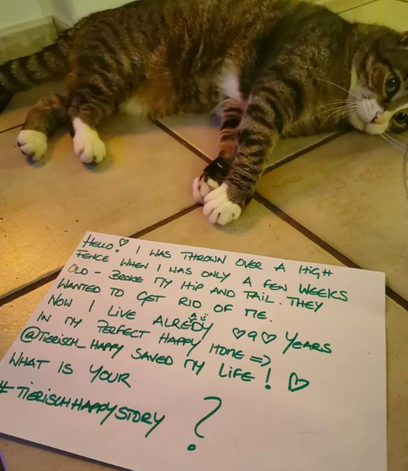 HELLO! ♡ I WAS THROWN OVER A HIGH
FENCE WHEN I WAS ONLY A FEW WEEKS
OLD - BROKE MY HIP AND TAIL. THEY
WANTED TO GET RID OF ME.
NOW I LIVE ALREDY ♡9♡ YEARS
IN MY PERFECT HAPPY HOME =>
@TIERISCH HAPPY SAVED MY LIFE! ♡
WHAT IS YOUR
#TIERISCHHAPPYSTORY ?